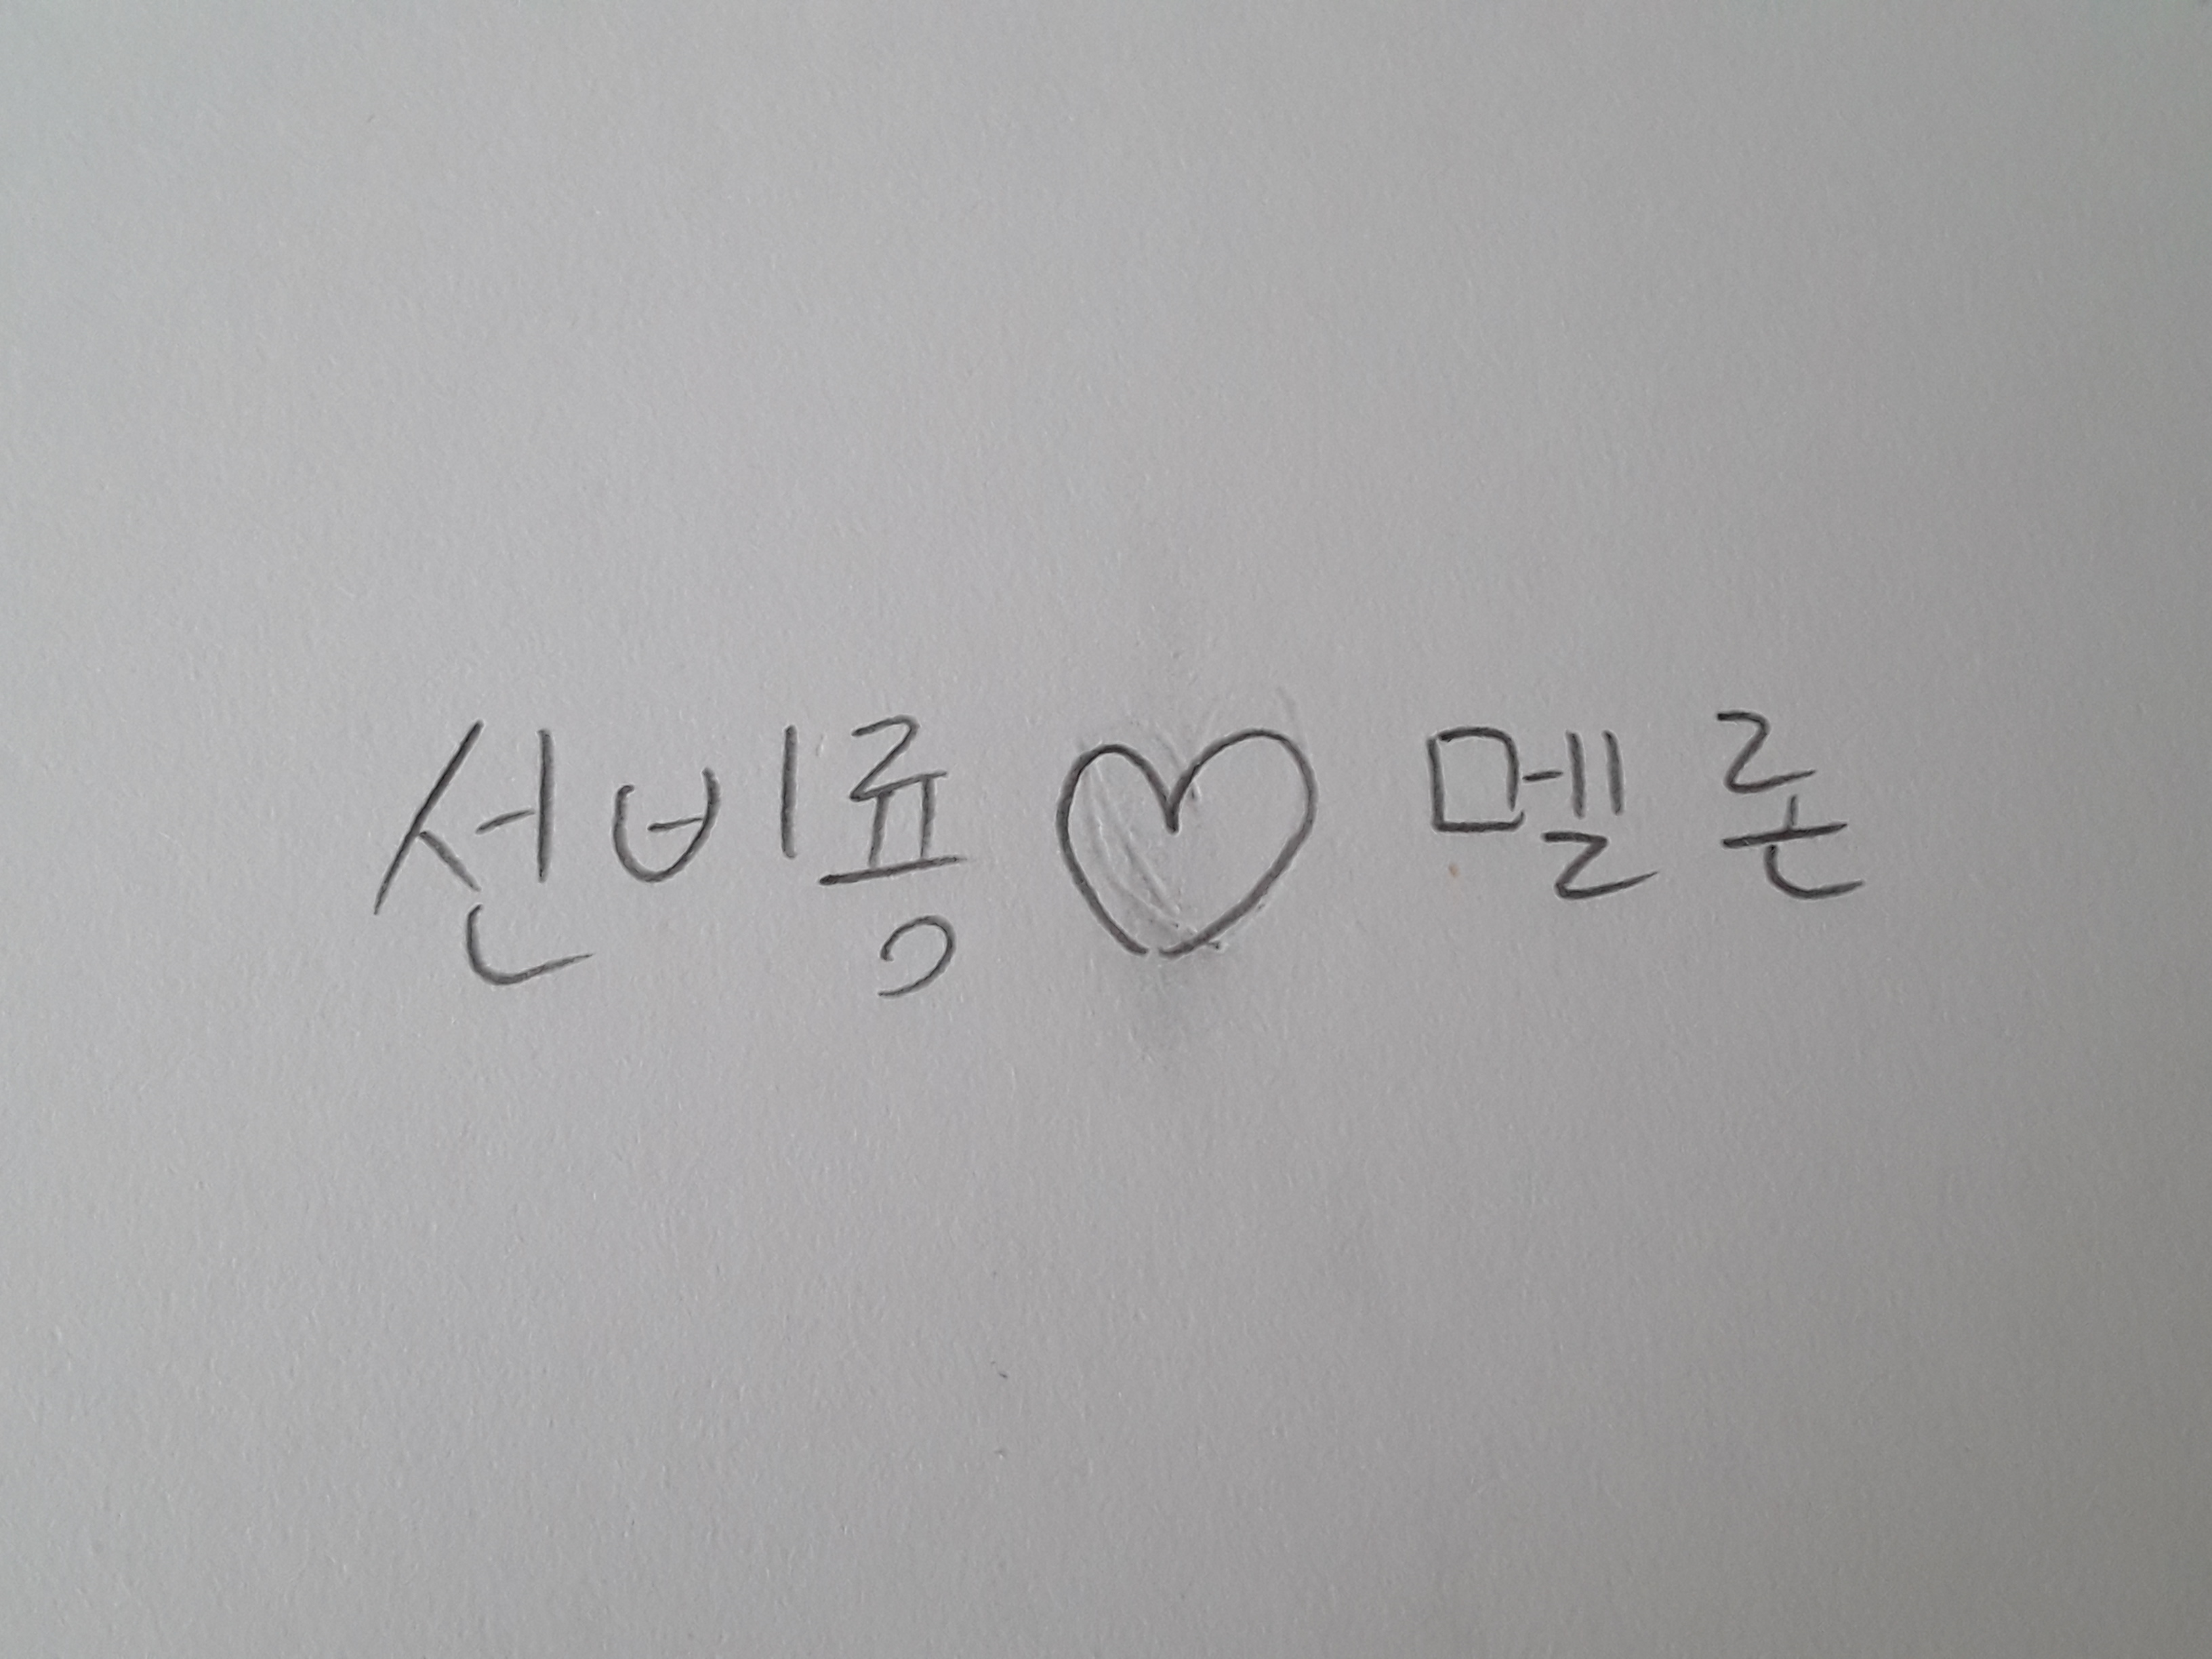 선비룡♡멜론